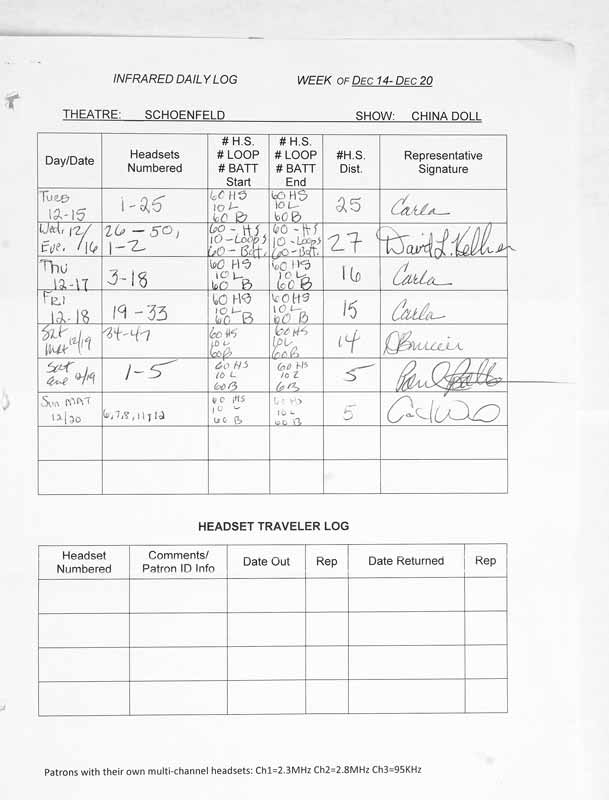 INFRARED DAILY LOG WEEK OF DEC 14- DEC 20
THEATRE: SCHOENFELD SHOW: CHINA DOLL
Day/Date Headsets Numbered # H.S. # LOOP # BATT Start # H.S. # LOOP # BATT End #H.S. Dist. Representative Signature
Tues 12-15 1-25 60 HS 10 L 60 B 60 HS 10 L 60 B 25 Carla
Wed. 12/16 Eve. 26-50, 1-2 60-HS 10-Loops 60-Batt. 60-HS 10-Loops 60-Batt. 27 David L.
Thu 12-17 3-18 60 HS 10 L 60 B 60 HS 10 L 60 B 16 Carla
FRI 12-18 19-33 60 HS 10 L 60 B 60 HS 10 L 60 B 15 Carla
Sat Mat 12/19 34-47 60 HS 10 L 60 B 60 HS 10 L 60 B 14
Sat eve 12/19 1-5 60 HS 10 L 60 B 60 HS 10 L 6 B 5
Sun MAT 12/20 6,7,8,11,12 60 HS 10 L 60 B 60 HS 10 L 60 B 5
HEADSET TRAVELER LOG
Headset Numbered Comments/ Patron ID Info Date Out Rep Date Returned Rep
Patrons with their own multi-channel headsets: Ch1=2.3MHz Ch2=2.8MHz Ch3=95KHz